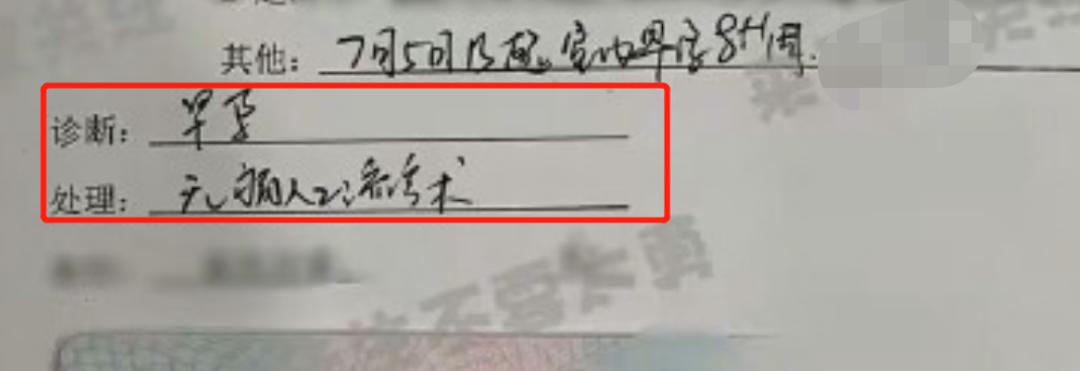 其他: 7月5日B超。宫内早孕8+周.
诊断: 早孕
处理: 无痛人工流产术